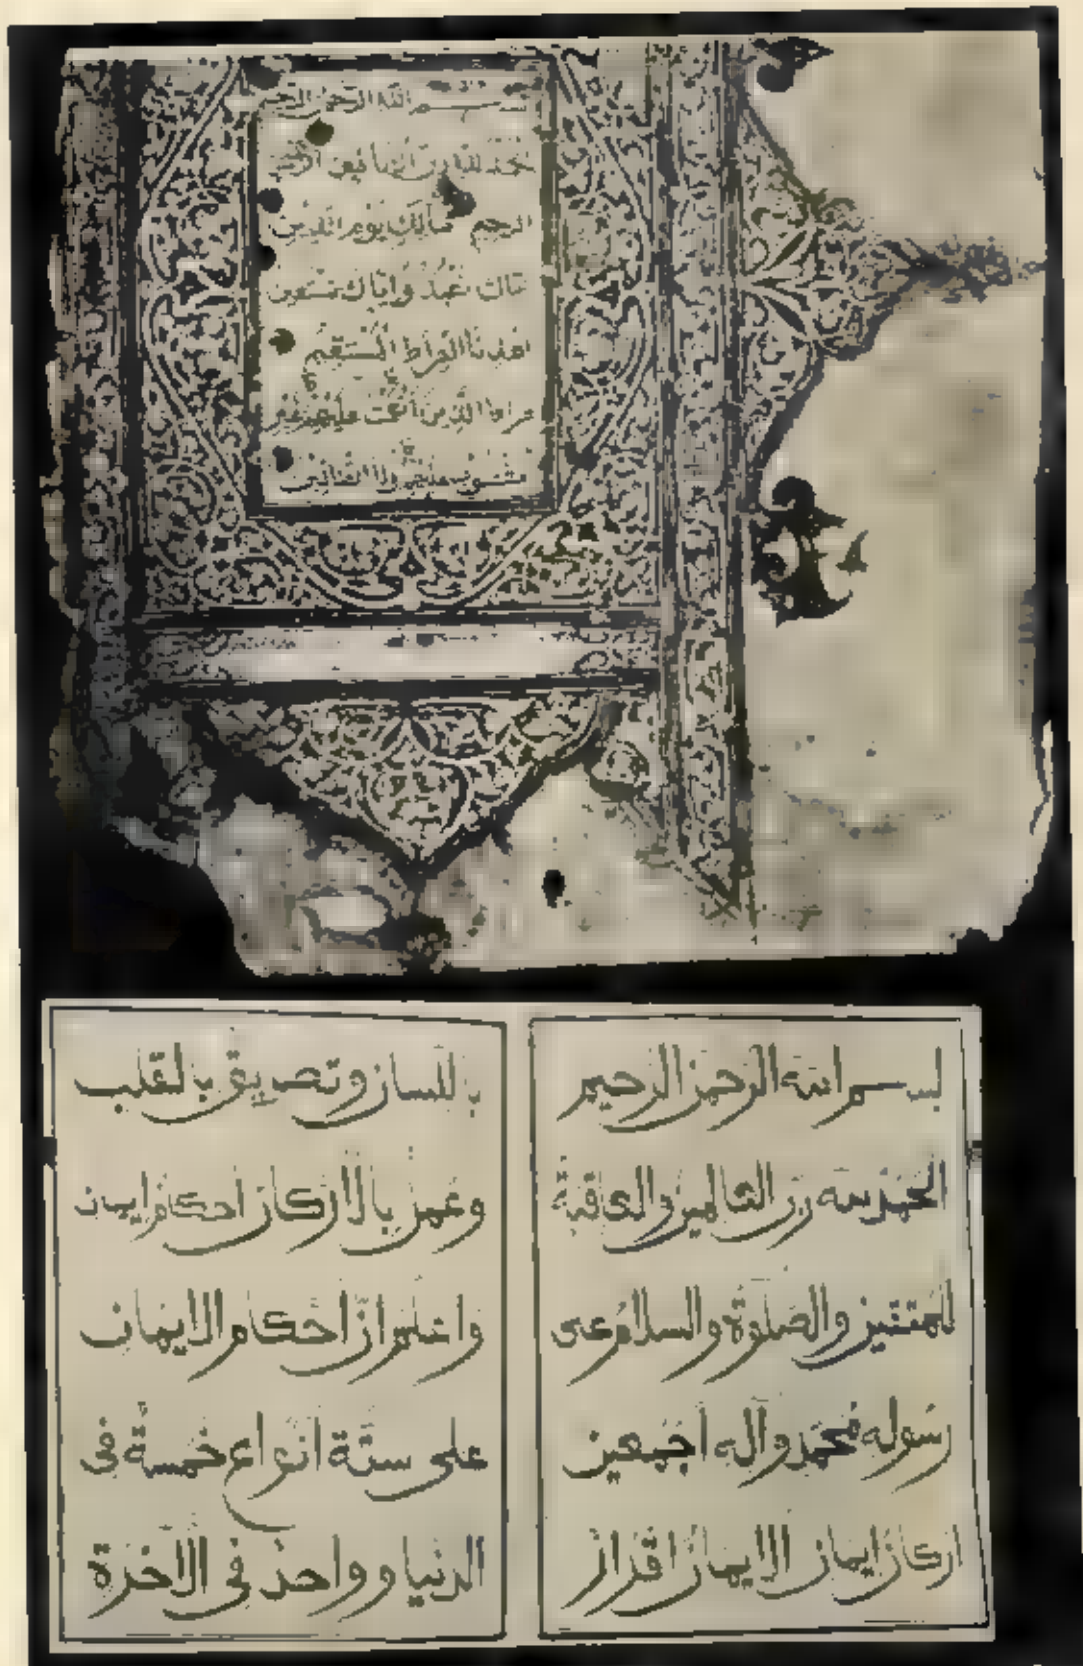 بسم الله الرحمن الرحيم
الرحيم مالك يوم الدين
نعبد واياك نستعين
اهدنا الصراط المستقيم
عليهم ولا الضالين
بسم الله الرحمن الرحيم
الحمد لله رب العالمين والعاقبة
للمتقين والصلوة والسلام على
رسوله محمد وآله اجمعين
اركان ايمان الايمان اقرار
باللسان وتصديق بالقلب
وعمل بالاركان احكام ايمان
واعلم ان احكام الايمان
على ستة انواع خمسة فى
الدنيا وواحد فى الآخرة